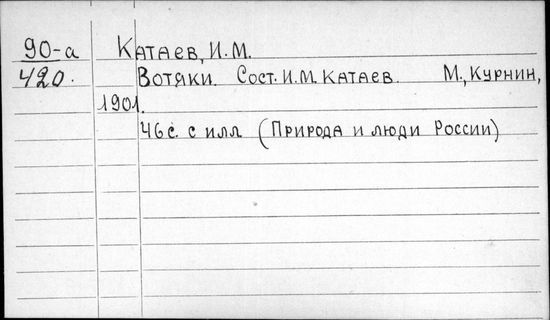 90-а Катаев, И.М.
420. Вотяки. Сост. И.М. Катаев. М., Курнин,
1901.
46 с. с илл. (Природа и люди России)